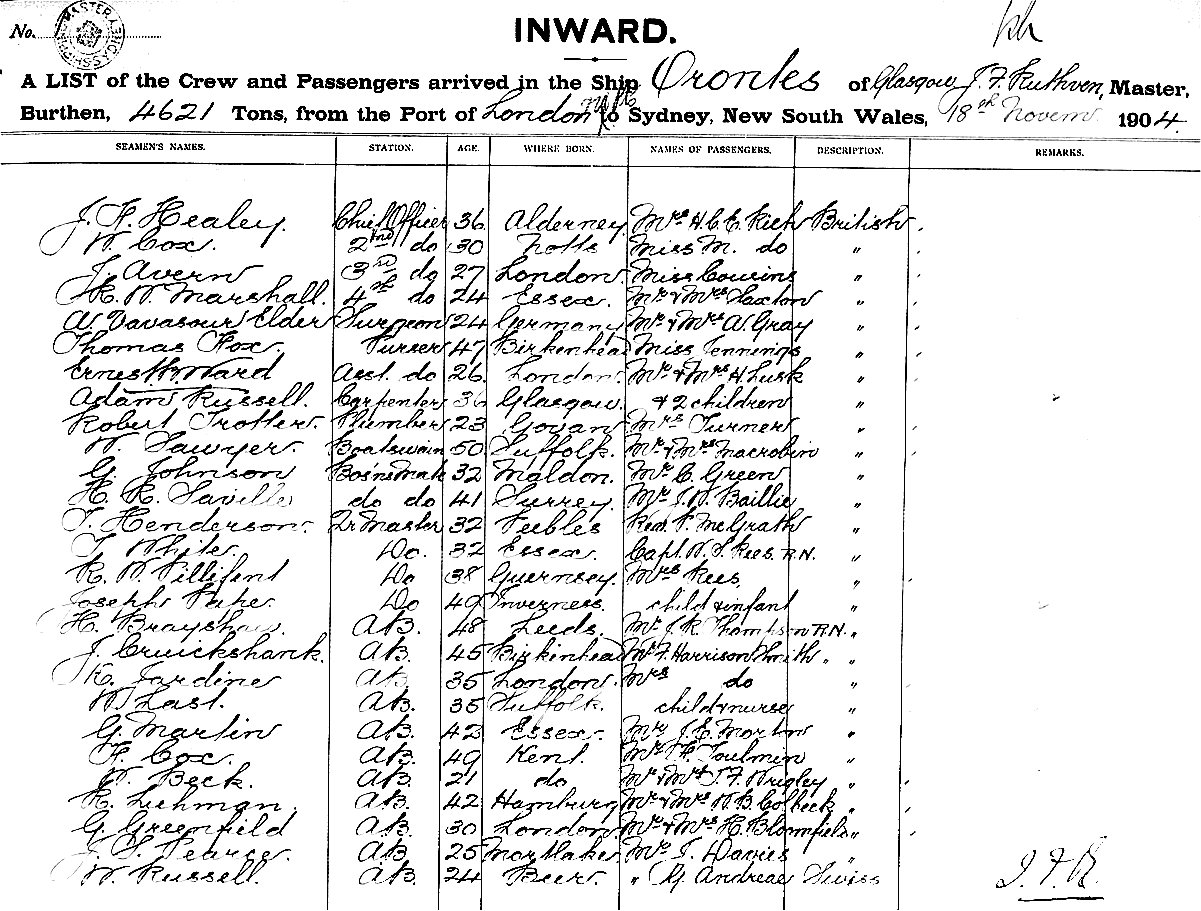 No.
INWARD.
A LIST of the Crew and Passengers arrived in the Ship Orontes of Glasgow, J. F. Ruthven, Master,
Burthen, 4621 Tons, from the Port of London to Sydney, New South Wales, 18th Novem 1904.
SEAMEN'S NAMES. STATION. AGE. WHERE BORN. NAMES OF PASSENGERS. DESCRIPTION. REMARKS.
J. F. Healey. Chief Officer 36 Alderney Mrs H. C. E. Rich British
W. Cox. 2nd do 30 Notts Miss M. do "
J. Avern 3rd do 27 London Miss Cousins "
H. W. Marshall. 4th do 24 Essex. Mr & Mrs Saxton "
A. Vavasour Elder Surgeon 24 Germany Mr & Mrs A. Gray "
Thomas Fox. Purser 47 Birkenhead Miss Jennings "
Ernest W. Ward Asst. do 26 London Mr & Mrs H. Lusk "
Adam Russell. Carpenter 36 Glasgow. & 2 children "
Robert Trotter. Plumber 23 Govan Mrs Turner "
W. Sawyer. Boatswain 50 Suffolk. Mr & Mrs Macrobin "
G. Johnson Bosns Mate 32 Maldon. Mr C. Green "
H. R. Saville do do 41 Surrey. Mr J. W. Baillie "
T. Henderson. Qr Master 32 Peebles Rev. P. McGrath "
T. White. Do. 32 Essex. Capt. W. S. Rees. R.N. "
R. W. Pillifent Do 38 Guernsey. Mrs Rees. "
Joseph Do 49 Inverness. child & infant "
H. Brayshaw. AB. 48 Leeds. Mr J. R. Thompson R.N. "
J. Cruickshank. AB. 45 Birkenhead Mr F. Harrison Smith " "
R. Jardine AB. 35 London. Mrs do "
W. Last. AB. 35 Suffolk. child & nurse "
G. Martin AB. 42 Essex. Mr J. E. Morton "
F. Cox. AB. 49 Kent. Mr F. Toulmin "
W. Beck. AB. 21 do Mr & Mrs T. F. Wrigley "
R. Liehman. AB. 42 Hamburg Mr & Mrs W. B. Colbeck "
G. Greenfield AB. 30 London Mr & Mrs H. Bloomfield "
J. S. Pearce. AB. 25 Mortlake Mr J. Davies "
W. Russell. AB. 24 Beer. " G. Andreae Swiss
J. F. R.